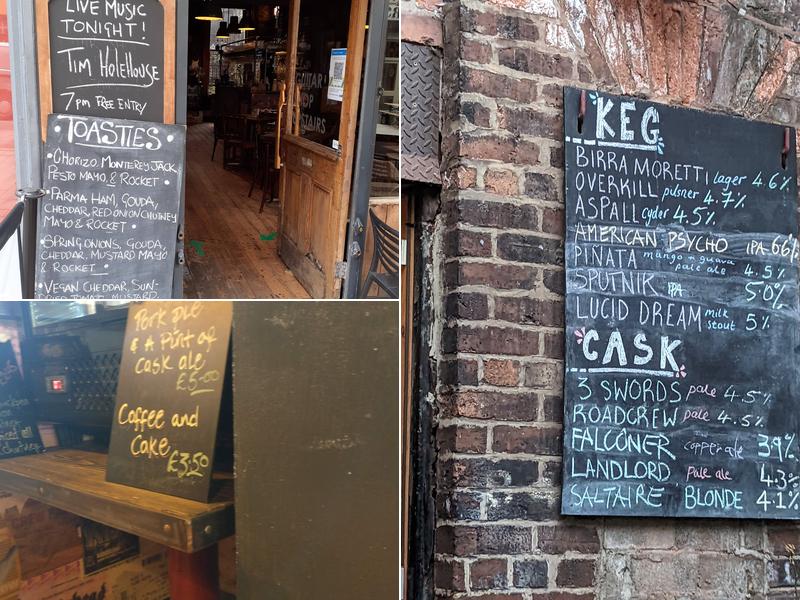 LIVE MUSIC
TONIGHT!
TIM HOLEHOUSE
7pm FREE ENTRY
TOASTIES
• CHORIZO, MONTEREY JACK,
PESTO MAYO, & ROCKET •
• PARMA HAM, GOUDA,
CHEDDAR, RED ONION CHUTNEY
MAYO & ROCKET •
• SPRING ONIONS, GOUDA,
CHEDDAR, MUSTARD MAYO
& ROCKET •
• VEGAN CHEDDAR, SUN-
DRIED TOMAT, MUSTARD,
GUITAR
SHOP
UPSTAIRS
Pork pie
& A Pint of
cask ale
£5.00
Coffee and
Cake
£3.50
KEG
BIRRA MORETTI lager 4.6%
OVERKILL pilsner 4.7%
ASPALL cyder 4.5%
AMERICAN PSYCHO IPA 6.6%
PIÑATA mango + guava pale ale 4.5%
SPUTNIK IPA 5.0%
LUCID DREAM milk stout 5%
CASK
3 SWORDS pale 4.5%
ROADCREW pale 4.5%
FALCONER copper ale 3.9%
LANDLORD pale ale 4.3%
SALTAIRE BLONDE 4.1%